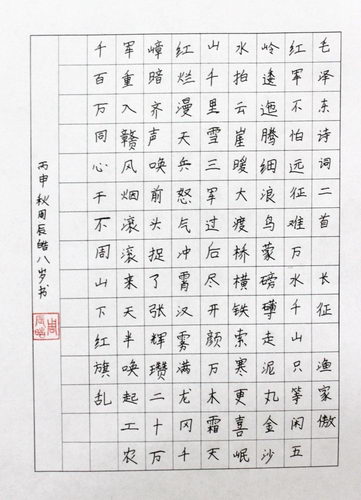 毛泽东诗词二首 长征 渔家傲
红军不怕远征难万水千山只等闲五
岭逶迤腾细浪乌蒙磅礴走泥丸金沙
水拍云崖暖大渡桥横铁索寒更喜岷
山千里雪三军过后尽开颜万木霜天
红烂漫天兵怒气冲霄汉雾满龙冈千
嶂暗齐声唤前头捉了张辉瓒二十万
军重入赣风烟滚滚来天半唤起工农
千百万同心干不周山下红旗乱
丙申秋周辰皓八岁书